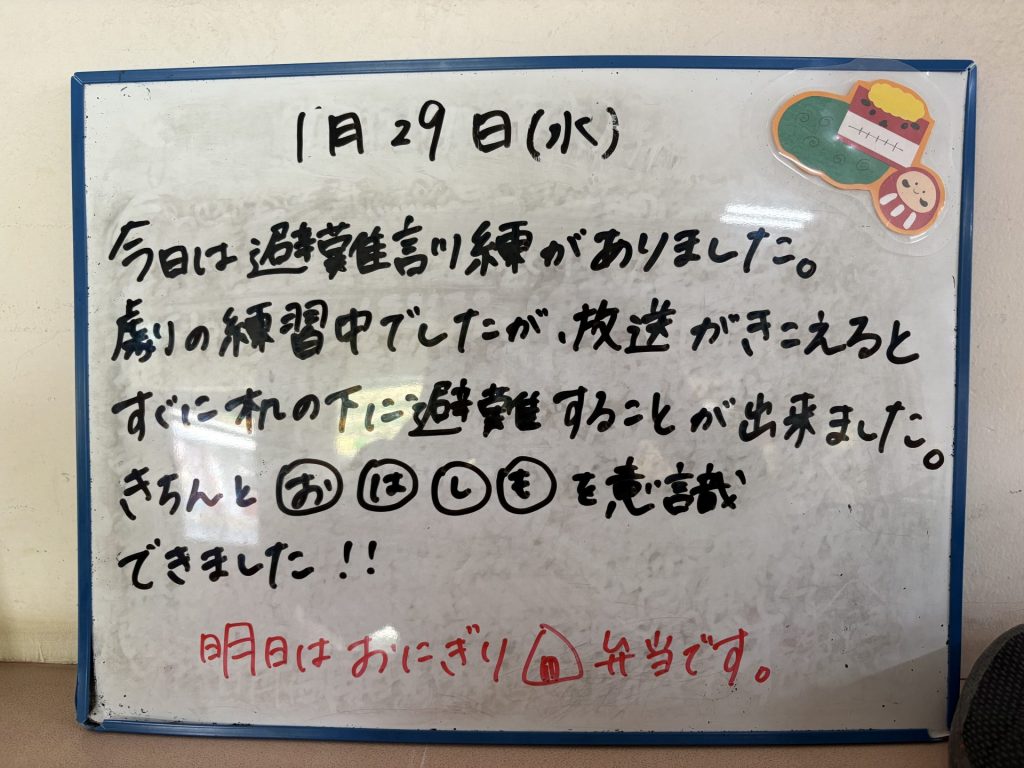 1月29日(水)
今日は避難訓練がありました。
劇の練習中でしたが、放送がきこえると
すぐに机の下に避難することが出来ました。
きちんと おはしも を意識
できました!!
明日はおにぎり弁当です。